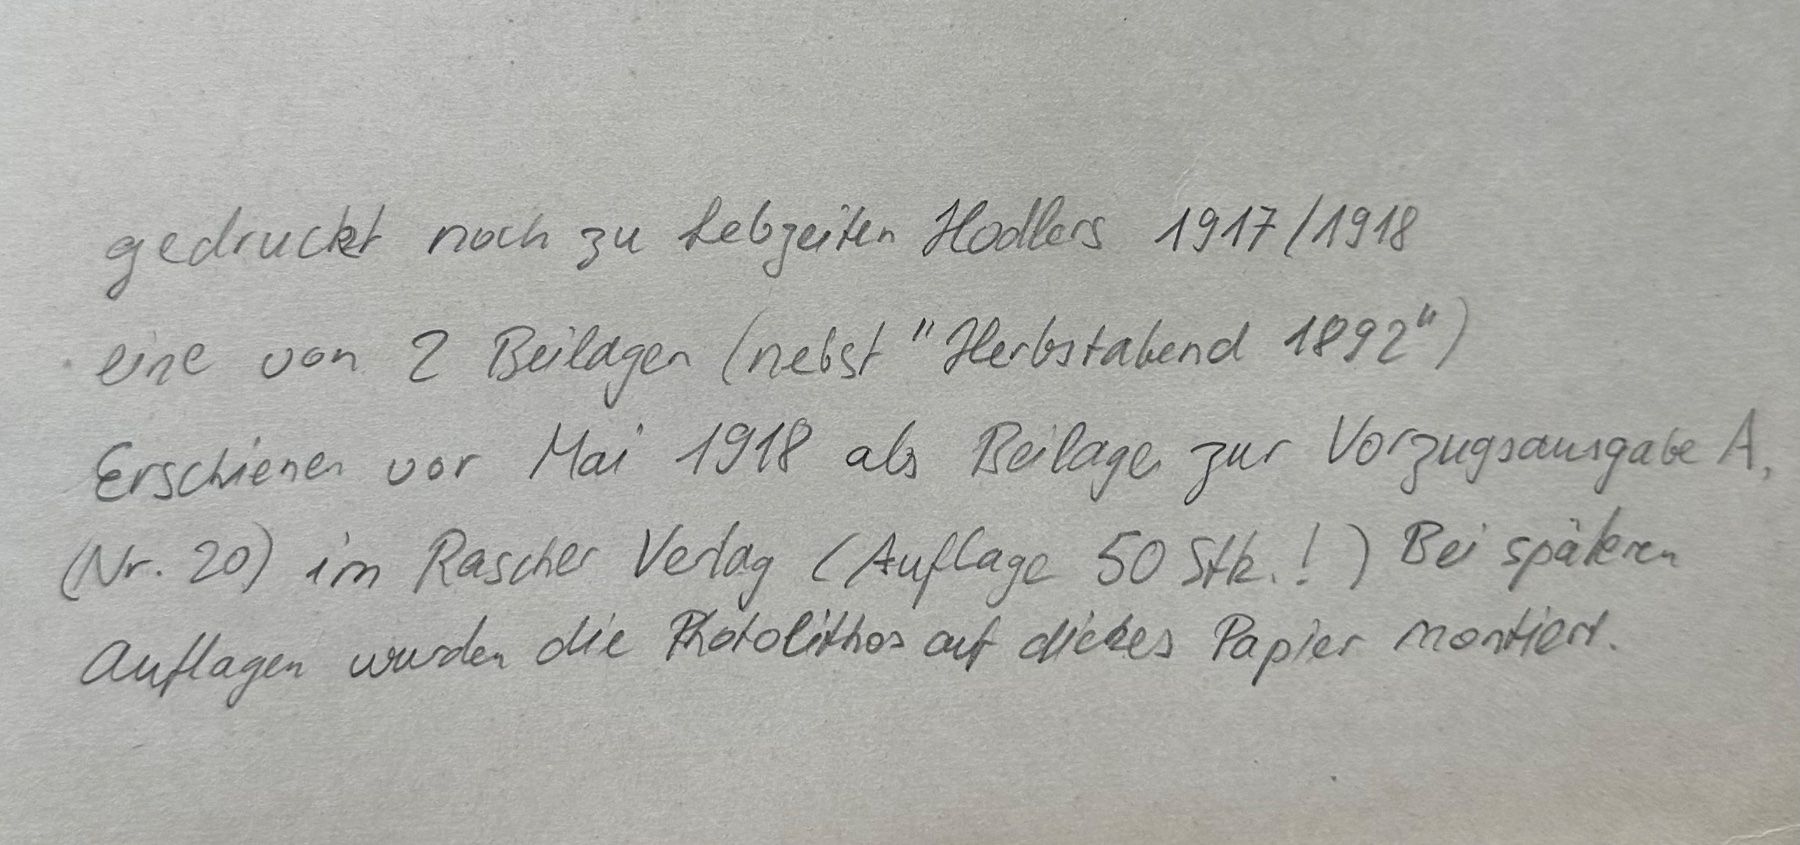 gedruckt noch zu Lebzeiten Hodlers 1917/1918
eine von 2 Beilagen (nebst "Herbstabend 1892")
Erschienen vor Mai 1918 als Beilage zur Vorzugsausgabe A,
(Nr. 20) im Rascher Verlag (Auflage 50 Stk.!) Bei späteren
Auflagen wurden die Photolithos auf dickes Papier montiert.